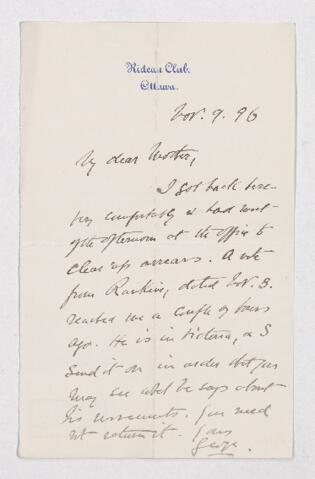 Rideau Club.
Ottawa.
Nov. 9. 96
My dear Mother,
I got back here
very comfortably & had most
of the afternoon at the office to
clear up arrears. A note
from Rankine, dated Nov. 3.
reached me a couple of hours
ago. He is in Victoria, & I
send it on in order that you
may see what he says about
his movements. You need
not return it. Yours
George.